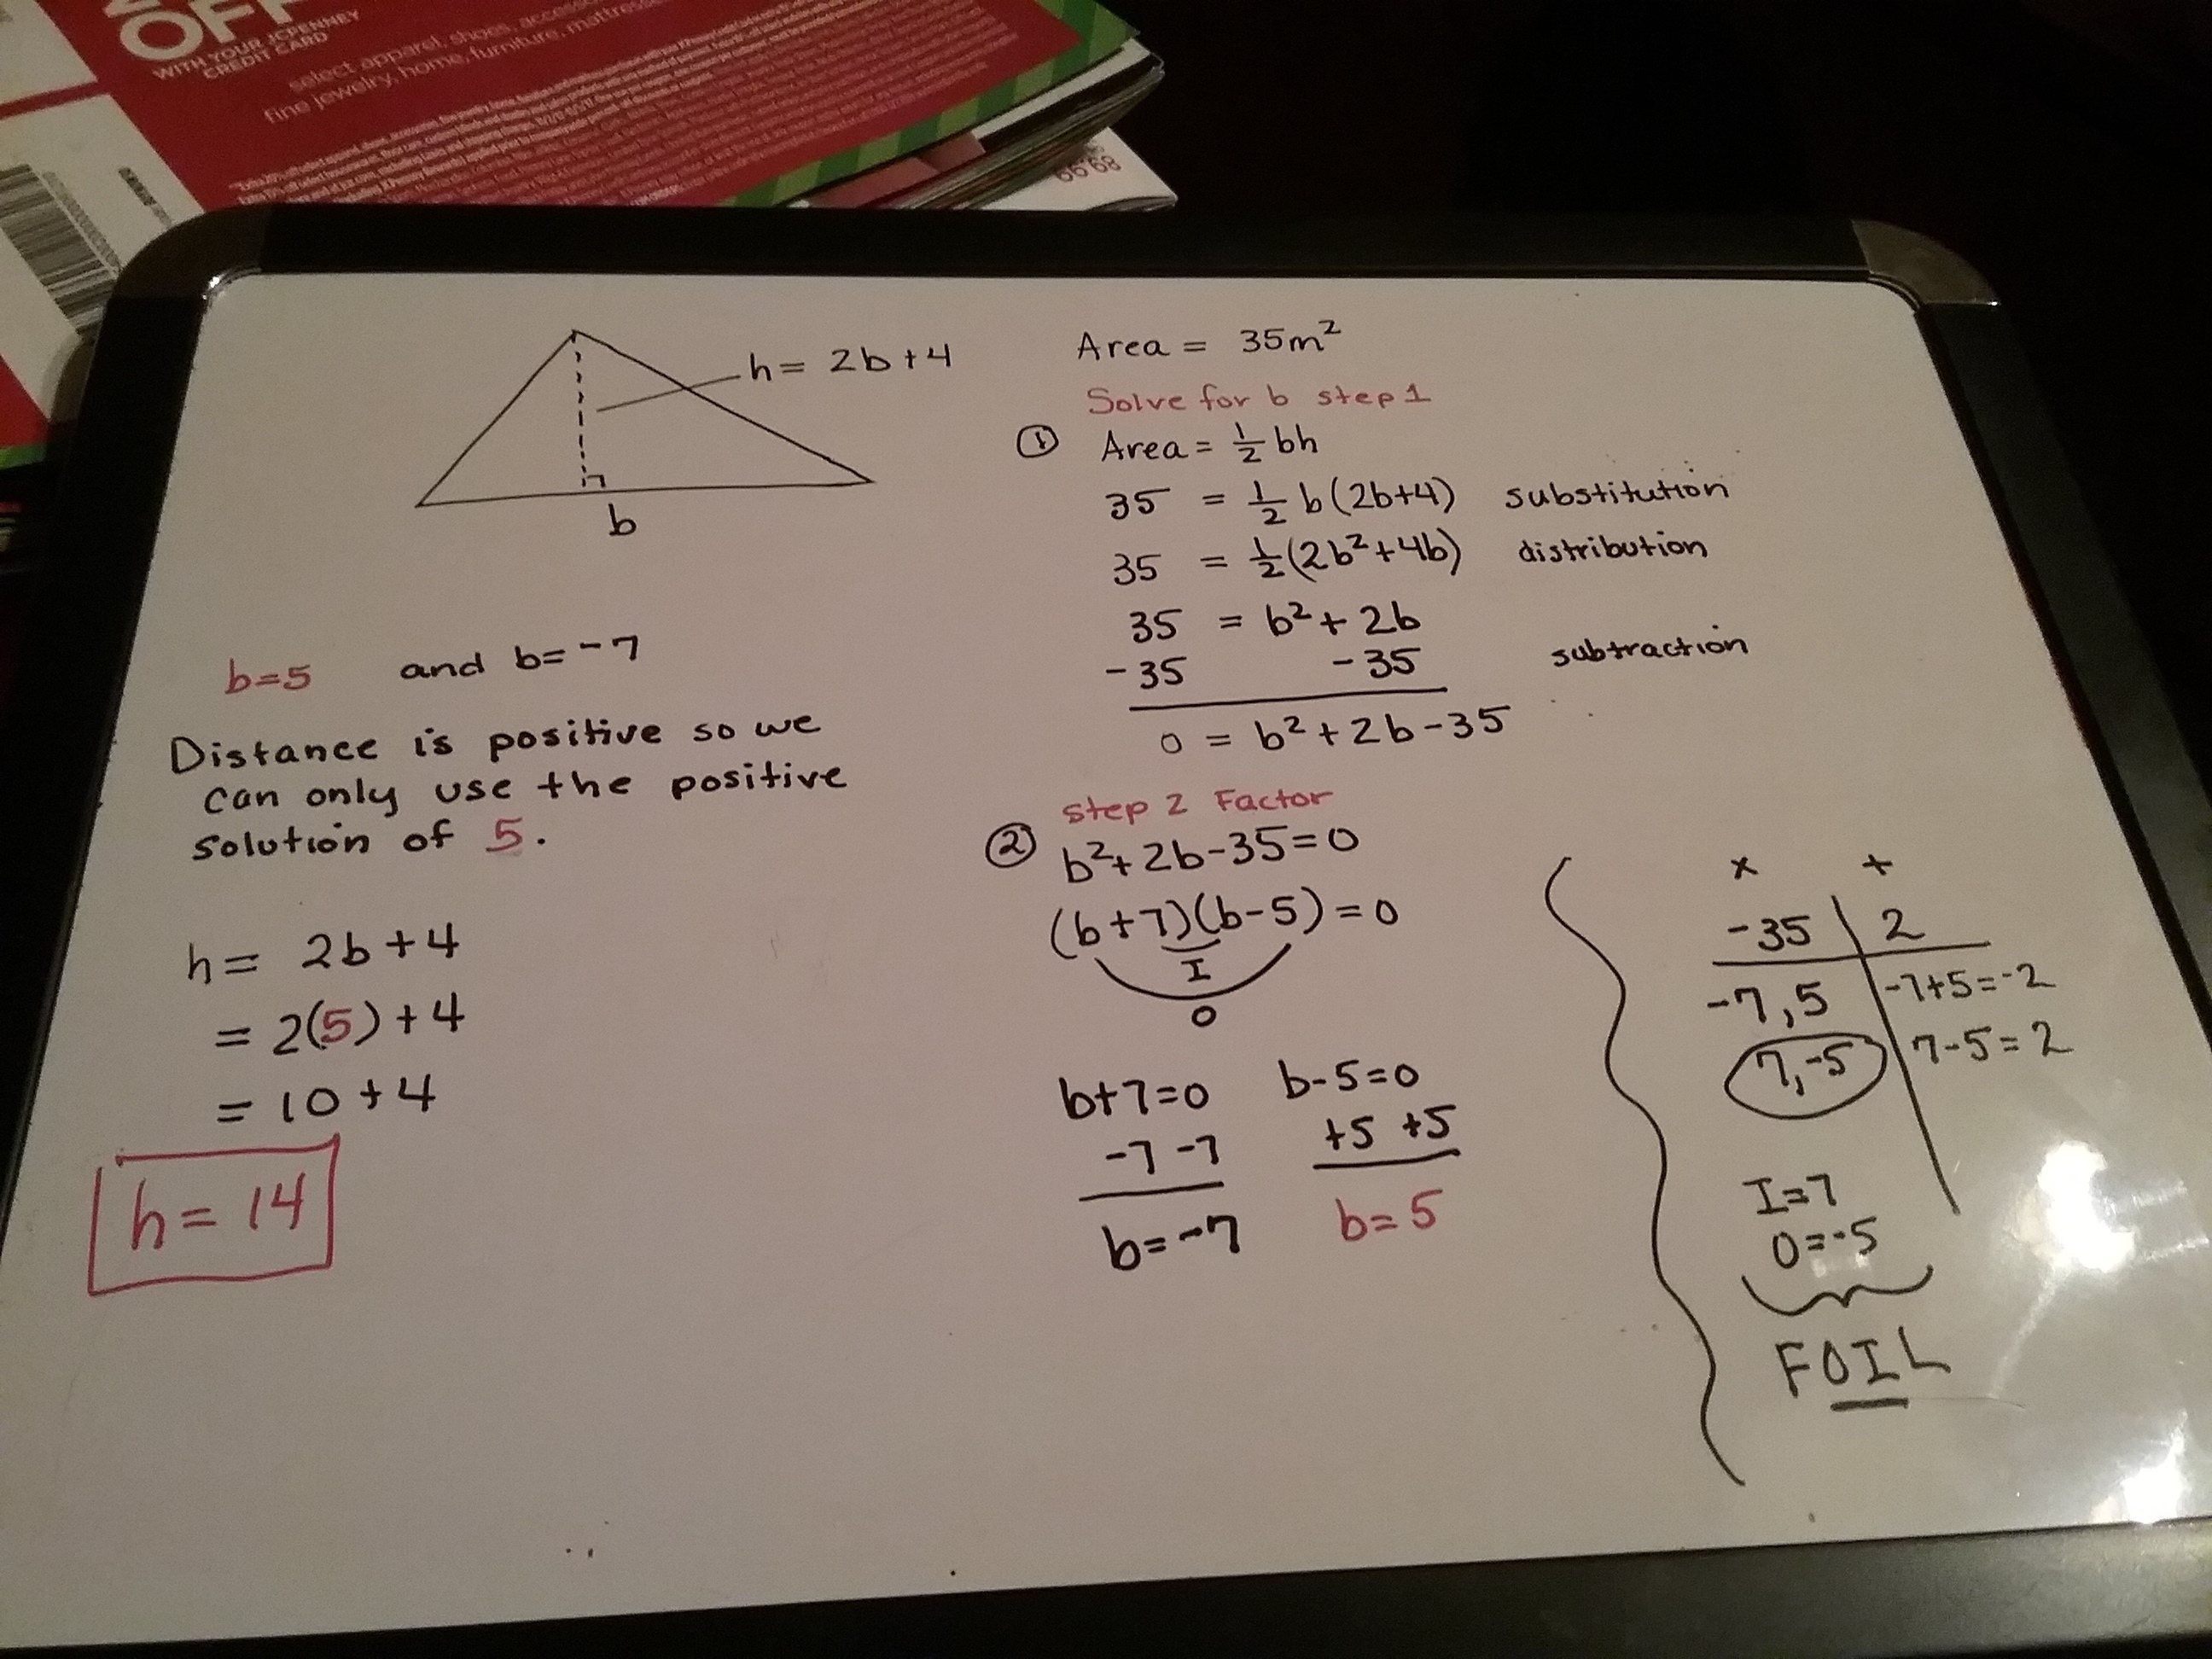 OFF
WITH YOUR JCPENNEY
CREDIT CARD
select apparel, shoes,
fine jewelry, home, furniture,
h = 2b+4
b
b=5 and b= -7
Distance is positive so we
can only use the positive
solution of 5.
h= 2b+4
= 2(5)+4
= 10+4
h= 14
Area = 35m²
Solve for b step 1
① Area = ½ bh
35 = ½ b(2b+4) substitution
35 = ½(2b²+4b) distribution
35 = b²+2b
-35 -35 subtraction
0 = b²+2b-35
step 2 Factor
② b²+2b-35=0
(b+7)(b-5)=0
I
O
b+7=0 b-5=0
-7 -7 +5 +5
b=-7 b=5
x +
-35 2
-7,5 -7+5=-2
7,-5 7-5=2
I=7
O=-5
FOIL